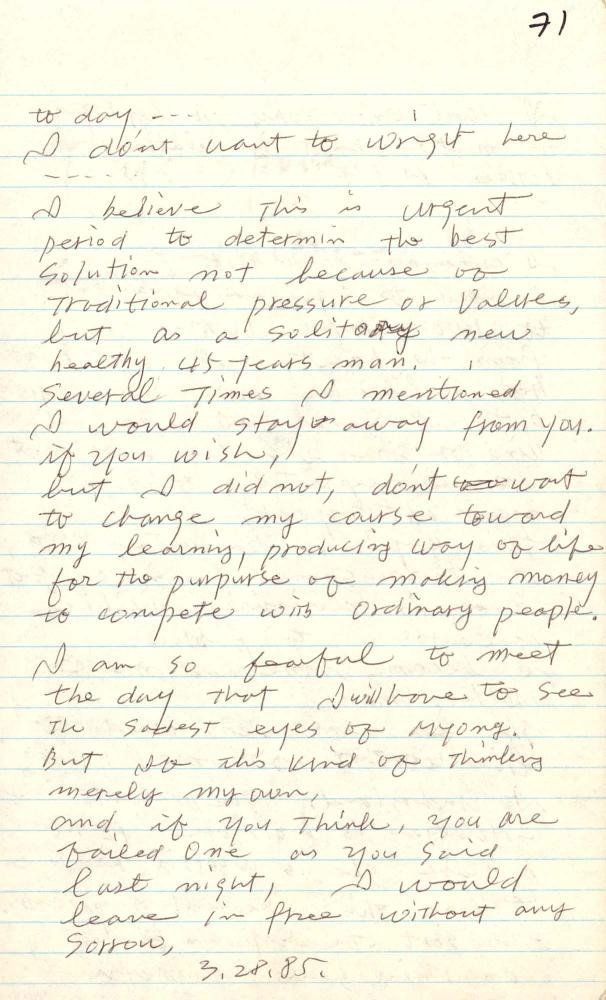 71
to day ---
I don't want to wright here
-----
I believe This is urgent
period to determin the best
Solution not because of
Traditional pressure or Values,
but as a solitary new
healthy 45 years man.
Several Times I mentioned
I would stay away from you.
if you wish,
but I did not, don't want
to change my course toward
my learning, producing way of life
for the purpurse of making money
to compete with Ordinary people.
I am so fearful to meet
the day that I will have to see
The Sadest eyes of Myong.
But this kind of Thinking
merely my own,
and if you Think, you are
failed One as you Said
last night, I would
leave in free without any
Sorrow,
3.28.85.